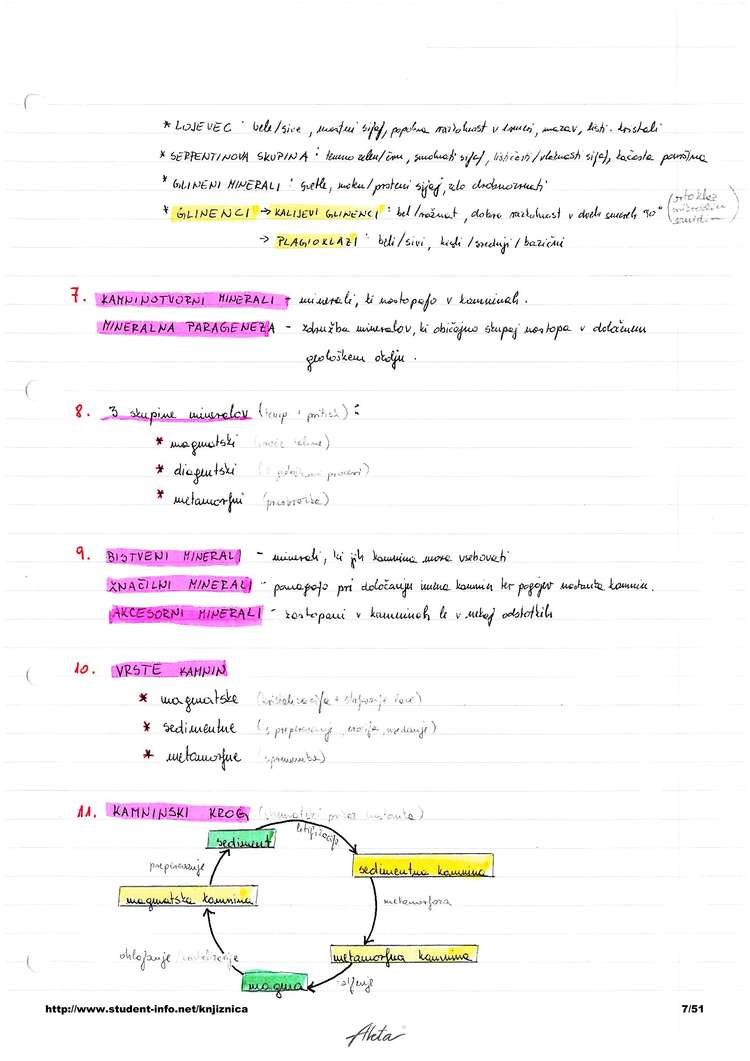 * LOJEVEC : bele/sive, mastni sijaj, popolna razkolnost v 1 smeri, mazav, listi. kristali
* SERPENTINOVA SKUPINA : temno zelen/črn, smolnati sijaj, lističasti/vlaknasti sijaj, kačasta površina
* GLINENI MINERALI : svetle, moten/prsteni sijaj, zelo drobnozrnati
* GLINENCI → KALIJEVI GLINENCI : bel/rožnat, dobra razkolnost v dveh smereh 90° (ortoklaz
mikroklin
sanidin)
→ PLAGIOKLAZI : beli/sivi, kisli/srednji/bazični
7. KAMNINOTVORNI MINERALI - minerali, ki nastopajo v kamninah.
MINERALNA PARAGENEZA - združba mineralov, ki običajno skupaj nastopa v določenem
geološkem okolju.
8. 3 skupine mineralov (temp + pritisk) :
* magmatski
* diagentski
* metamorfni (preobrazba)
9. BISTVENI MINERALI - minerali, ki jih kamnina mora vsebovati
ZNAČILNI MINERALI - pomagajo pri določanju imena kamnin ter pogojev nastanka kamnin.
AKCESORNI MINERALI - zastopani v kamninah le v nekaj odstotkih
10. VRSTE KAMNIN
* magmatske (kristalizacija + strjevanje lave)
* sedimentne (preperevanje, erozija, usedanje)
* metamorfne (sprememba)
11. KAMNINSKI KROG
sediment
litifikacija
preperevanje
sedimentna kamnina
magmatska kamnina
metamorfoza
ohlajanje / kristalizacija
metamorfna kamnina
magma
taljenje
http://www.student-info.net/knjiznica
7/51
Akta